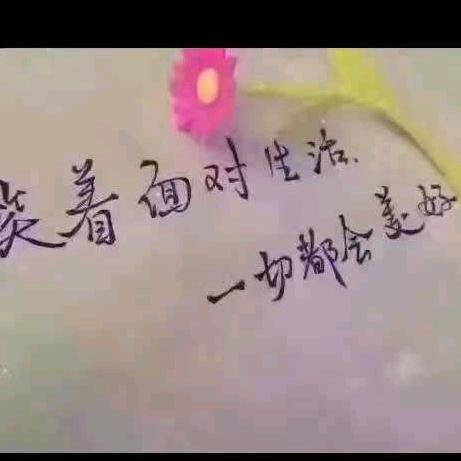 笑着面对生活.
一切都会美好